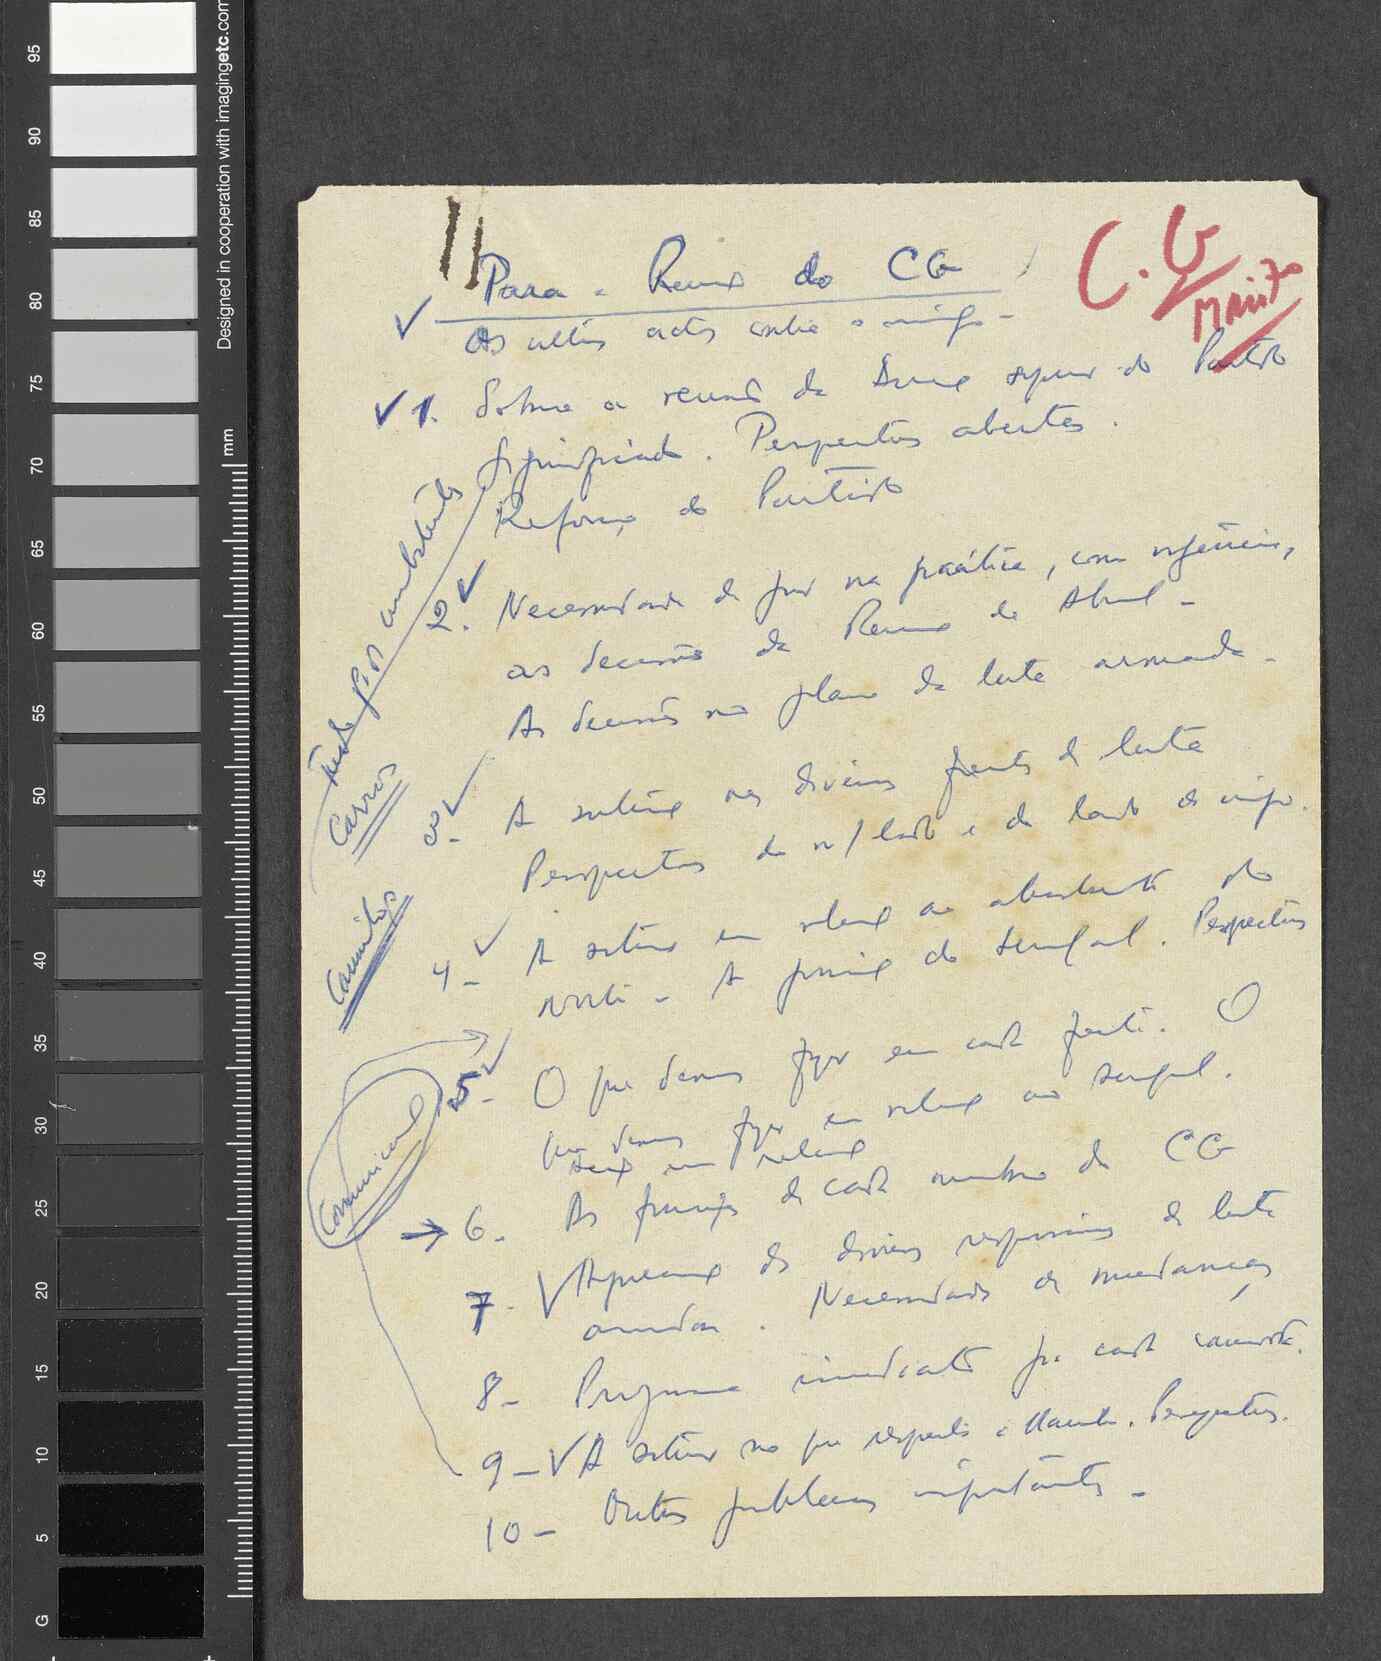 C.G
MAIO 70
Para a Reunião do CG
Os actos contra o
1. Sobre a reunião da do Partido
Significado. Perspectivas abertas.
Reforço do Partido
2. Necessidade de na prática, com urgência,
as decisões da Reunião de Abril -
As decisões no plano da luta armada -
3- A situação nas diversas frentes de luta
Perspectivas do n/ lado e do lado do inimigo.
4- A situação em relação ao
Norte - A posição do Senegal. Perspectivas
5- O que devemos fazer em cada frente. O
que devemos fazer em relação ao Senegal.
em relação
→ 6- As funções de cada membro do CG
7- dos diversos responsáveis da luta
armada. Necessidade de mudanças
8- Programa imediato de cada camarada.
9- A situação no que respeita a Perspectivas.
10- Outros problemas importantes -
combatentes
Carros
Camiões
Comunicado
95
90
85
80
75
70
65
60
55
50
45
40
35
30
25
20
15
10
5
G
mm
Designed in cooperation with imagingetc.com